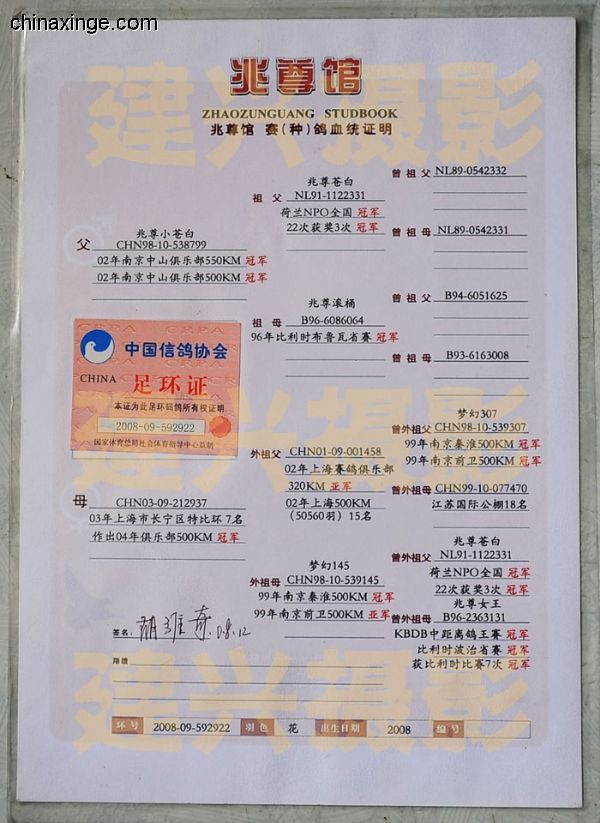 chinaxinge.com
建兴摄影
兆尊馆
ZHAOZUNGUANG STUDBOOK
兆尊馆 赛(种)鸽血统证明
父
兆尊小苍白
CHN98-10-538799
02年南京中山俱乐部550KM 冠军
02年南京中山俱乐部500KM 冠军
祖父
兆尊苍白
NL91-1122331
荷兰NPO全国 冠军
22次获奖3次 冠军
曾祖父 NL89-0542332
曾祖母 NL89-0542331
祖母
兆尊滚桶
B96-6086064
96年比利时布鲁瓦省赛 冠军
曾祖父 B94-6051625
曾祖母 B93-6163008
中国信鸽协会
CHINA 足环证
本证为此足环码鸽所有权证明
2008-09-592922
国家体育总局社会体育指导中心监制
建兴摄影
母
CHN03-09-212937
03年上海市长宁区特比环 7名
作出04年俱乐部500KM 冠军
外祖父 CHN01-09-001458
02年上海赛鸽俱乐部
320KM 亚军
02年上海500KM
(50560羽) 15名
梦幻307
曾外祖父 CHN98-10-539307
99年南京秦淮500KM 冠军
99年南京前卫500KM 冠军
曾外祖母 CHN99-10-077470
江苏国际公棚18名
梦幻145
外祖母 CHN98-10-539145
99年南京秦淮500KM 冠军
99年南京前卫500KM 亚军
兆尊苍白
曾外祖父 NL91-1122331
荷兰NPO全国 冠军
22次获奖3次 冠军
兆尊女王
曾外祖母 B96-2363131
KBDB中距离鸽王赛 冠军
比利时波治省赛 冠军
获比利时比赛7次 冠军
签名:
08.12
翔绩
建兴摄影
环号 2008-09-592922 羽色 花 出生日期 2008 编号